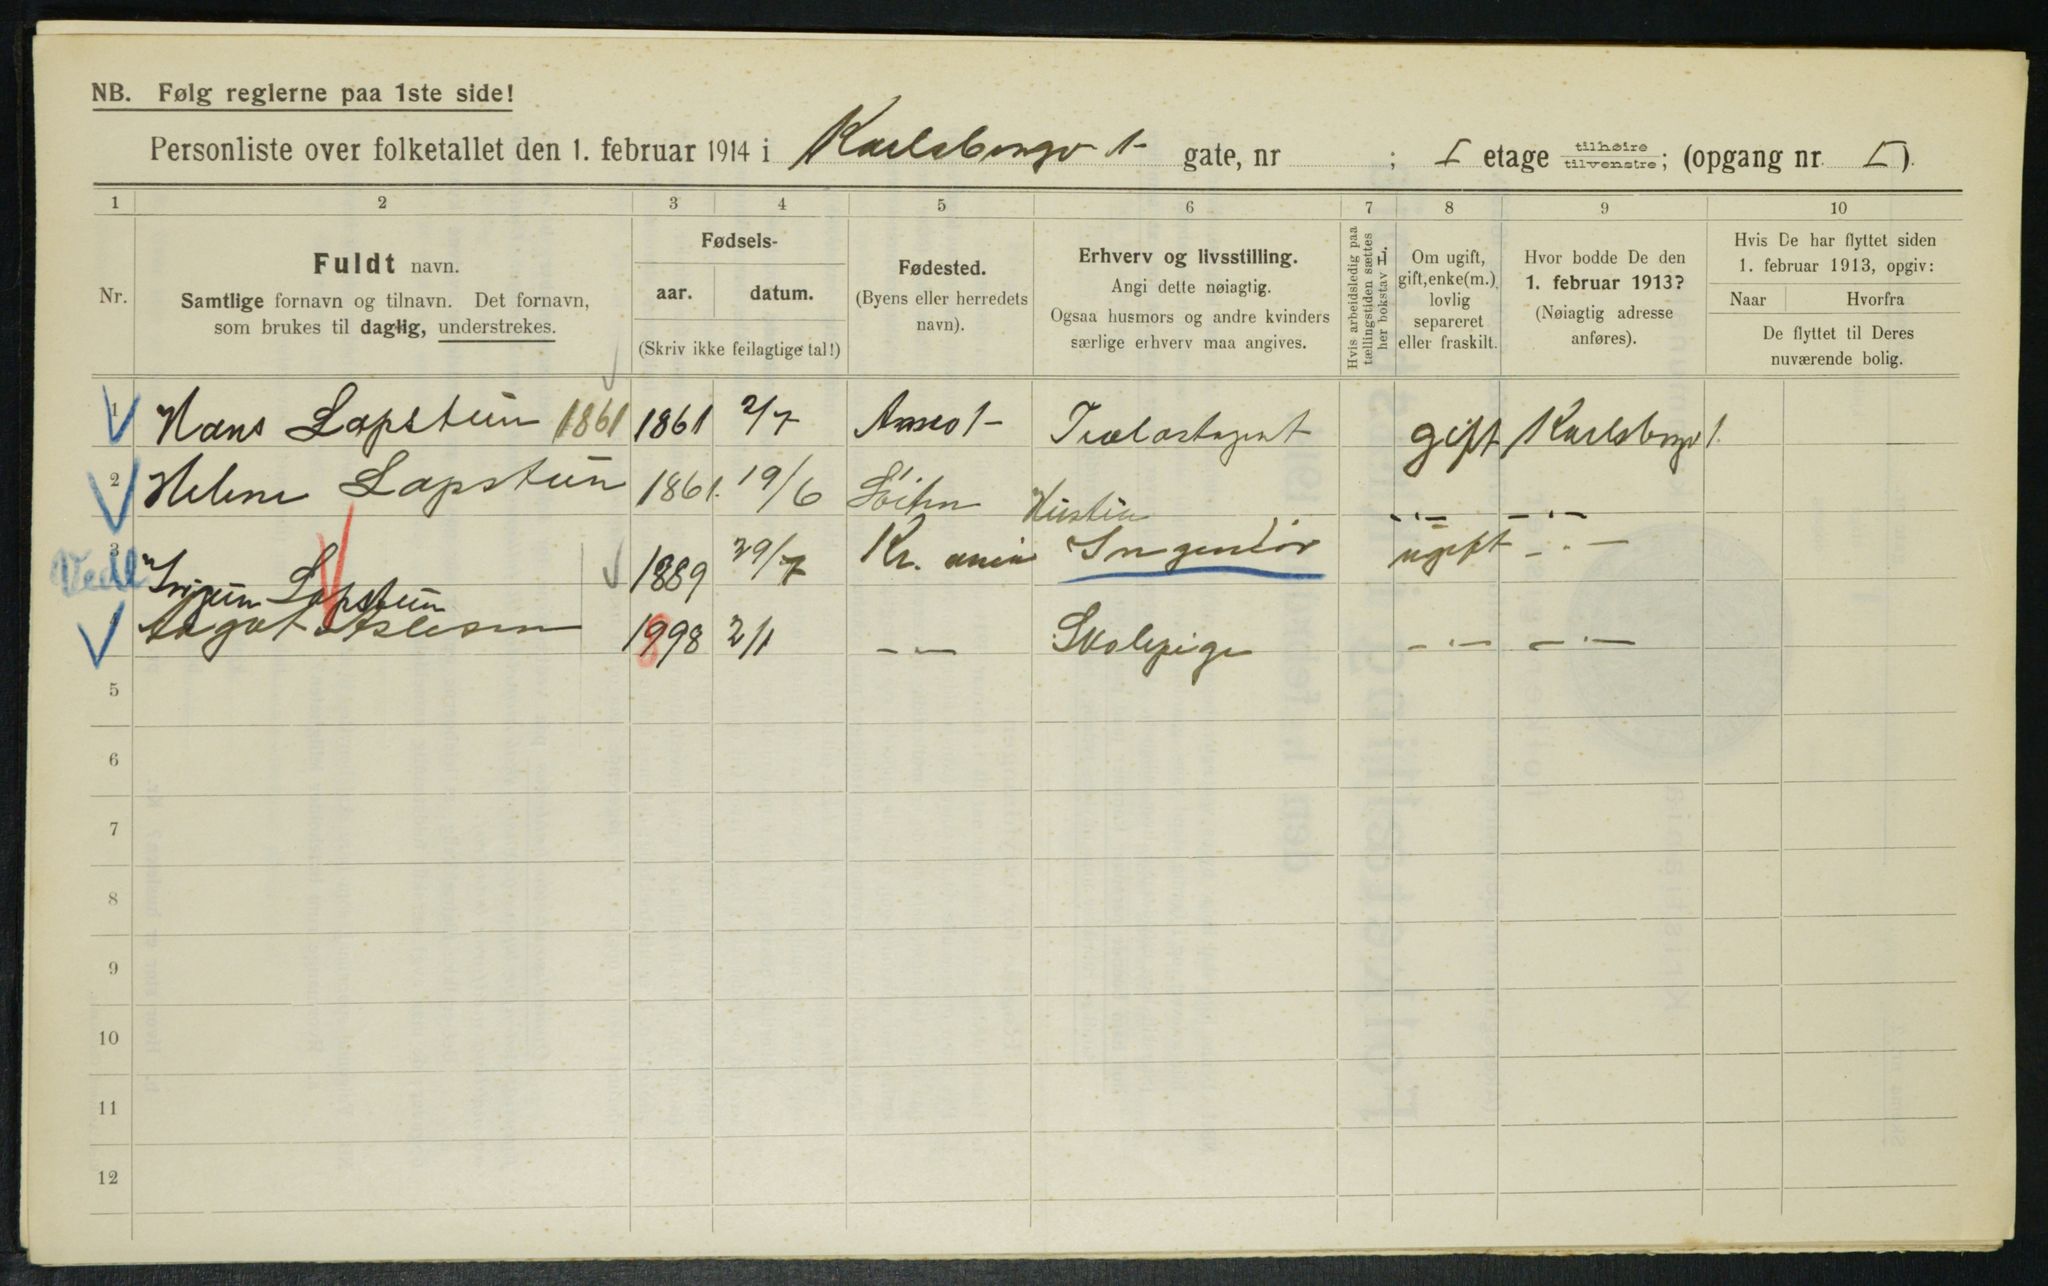 NB. Følg reglerne paa 1ste side!
Personliste over folketallet den 1. februar 1914 i Karlsborgv 1- gate, nr ; I etage tilhøire tilvenstre; (opgang nr. I).
1 2 3 4 5 6 7 8 9 10
Nr.
Fuldt navn.
Samtlige fornavn og tilnavn. Det fornavn,
som brukes til daglig, understrekes.
Fødsels-
aar. datum.
(Skriv ikke feilagtige tal!)
Fødested.
(Byens eller herredets
navn).
Erhverv og livsstilling.
Angi dette nøiagtig.
Ogsaa husmors og andre kvinders
særlige erhverv maa angives.
Hvis arbeidsledig paa
tællingstiden sættes
her bokstav L.
Om ugift,
gift, enke(m.),
lovlig
separeret
eller fraskilt.
Hvor bodde De den
1. februar 1913?
(Nøiagtig adresse
anføres).
Hvis De har flyttet siden
1. februar 1913, opgiv:
Naar Hvorfra
De flyttet til Deres
nuværende bolig.
1 Hans Lapstun 1861 1861 2/7 Trælastagent gift Karlsborgv 1.
2 Helene Lapstun 1861. 19/6 Hustru -·- -·-
Vedl 3 Lapstun 1889 29/7 Kr. ania Ingeniør ugift -·-
4 Aslesen 1898 2/1 -·- Skolepige -·- -·-
5
6
7
8
9
10
11
12